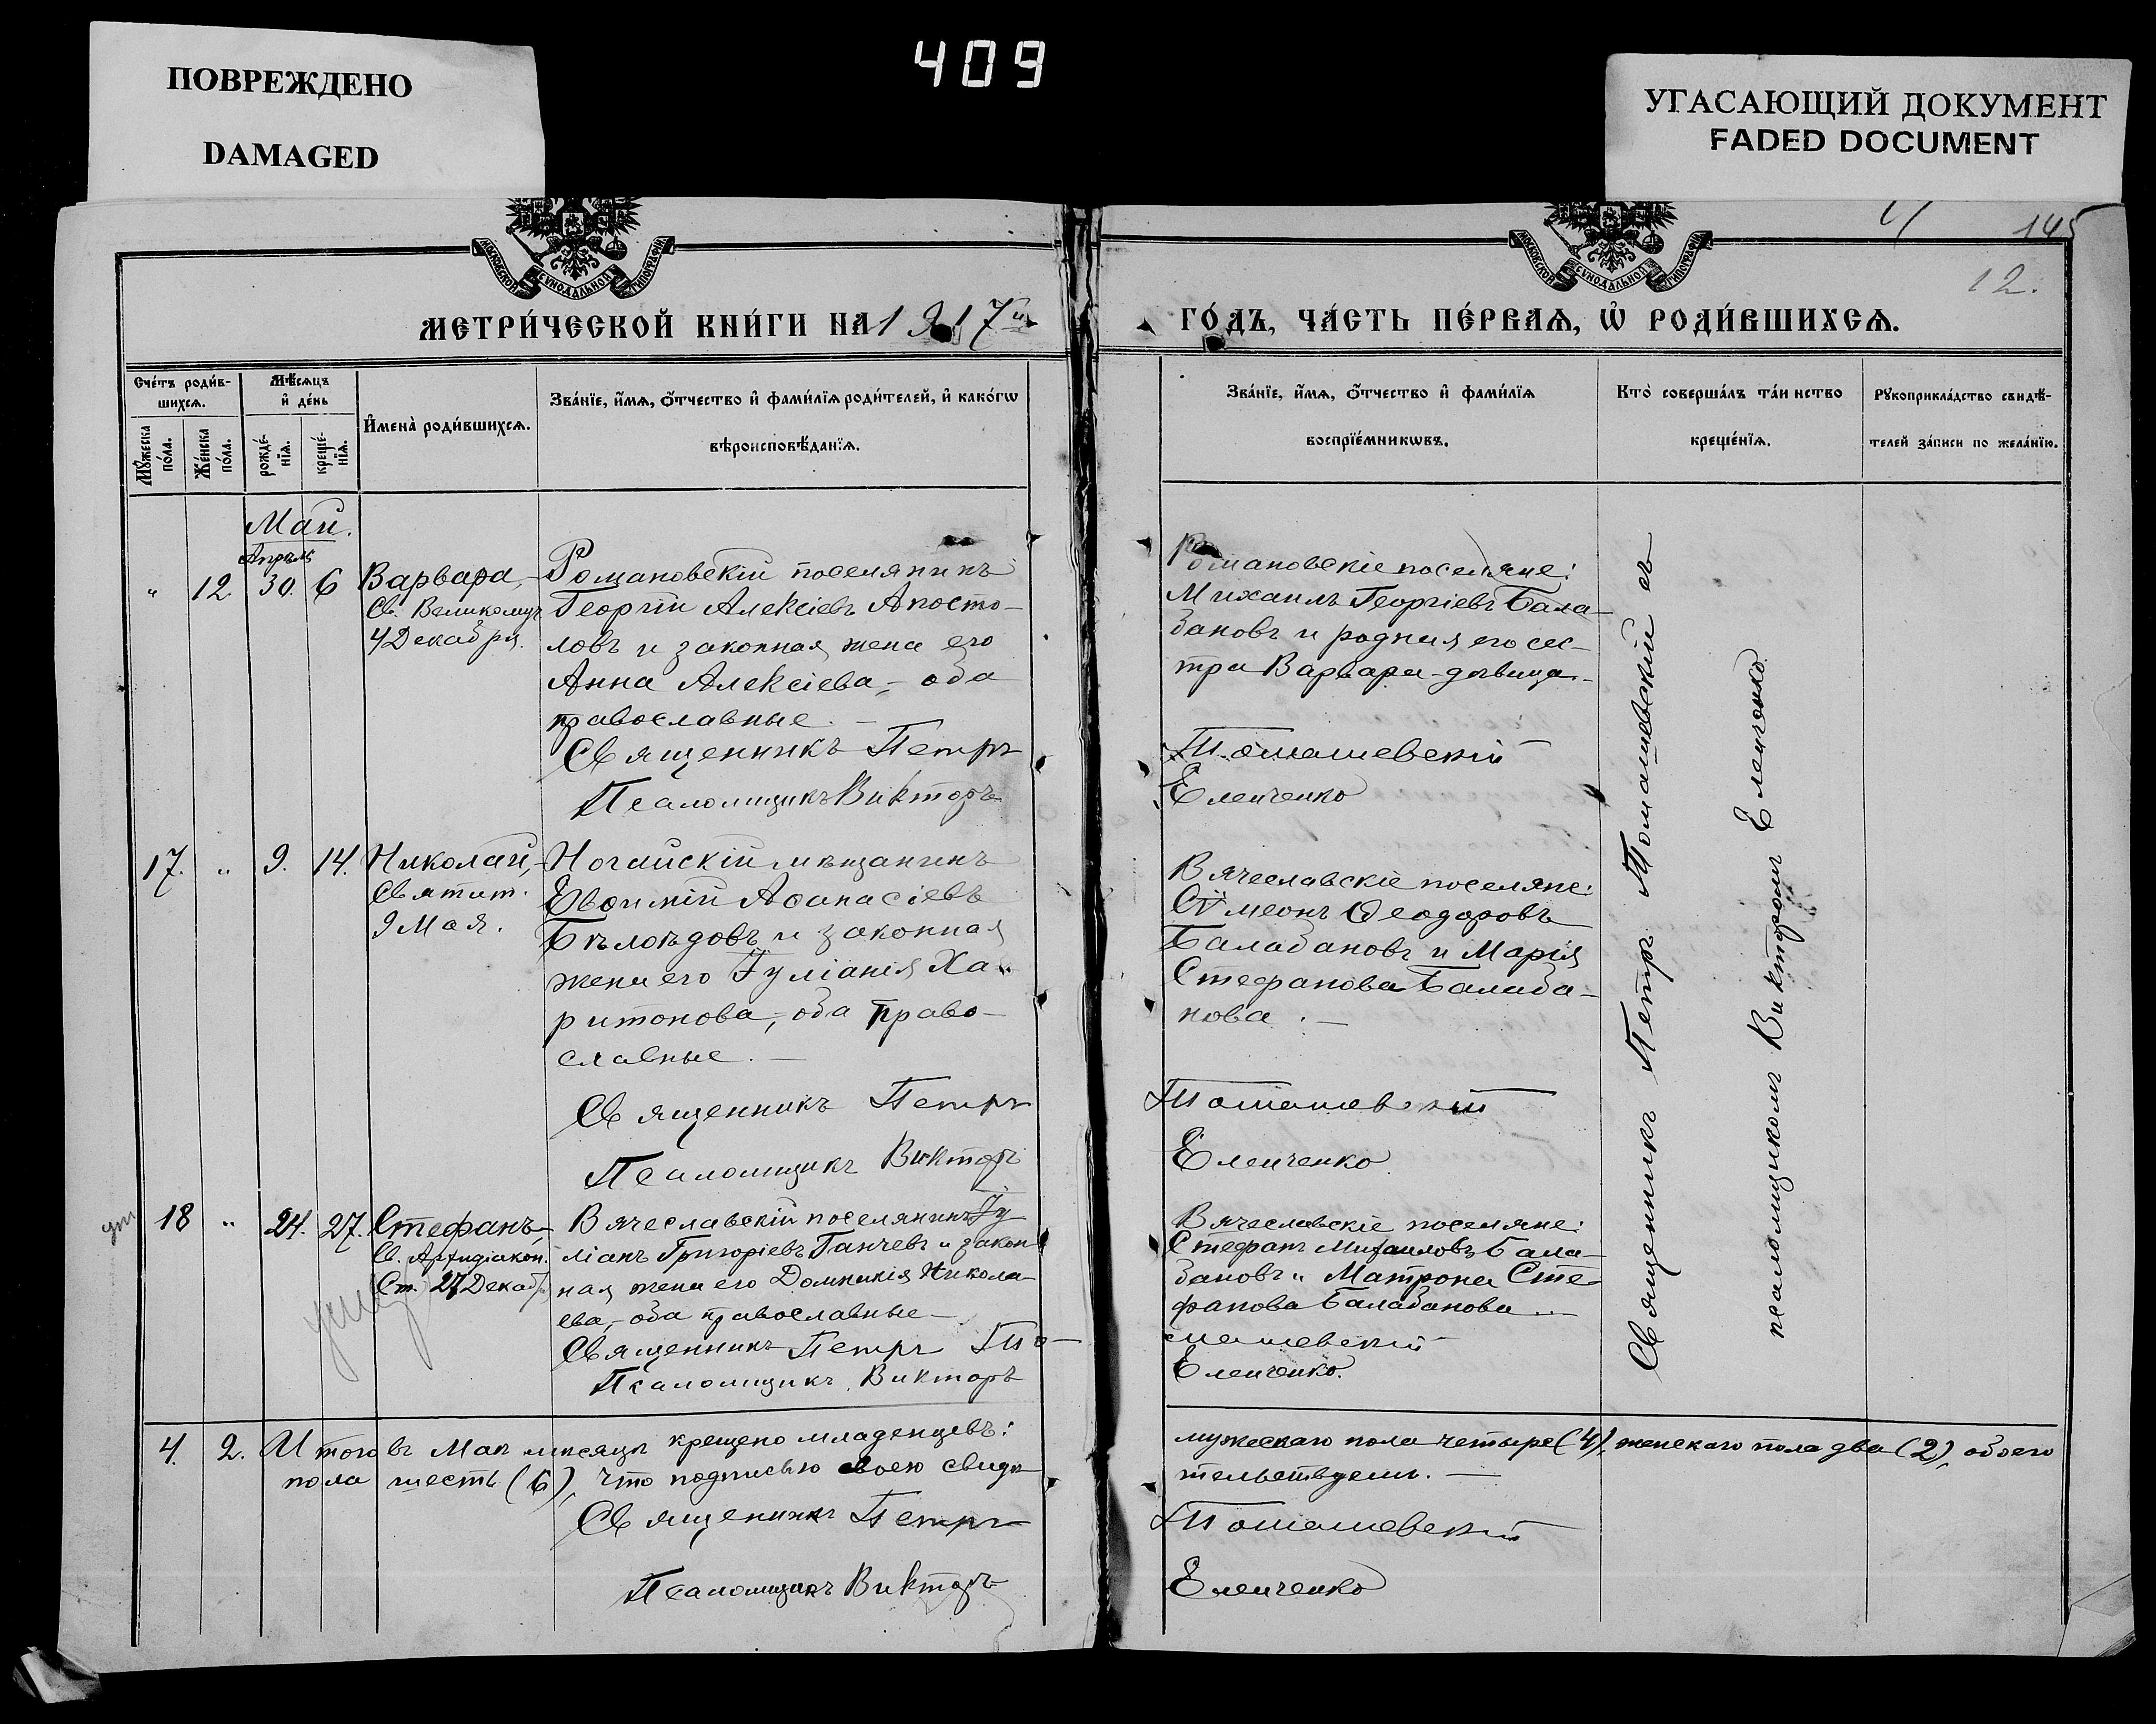 ПОВРЕЖДЕНО
DAMAGED
409
УГАСАЮЩИЙ ДОКУМЕНТ
FADED DOCUMENT
145
12.
МОСКОВСКОЙ СУНОДАЛЬНОЙ ТИПОГРАФІИ
МОСКОВСКОЙ СУНОДАЛЬНОЙ ТИПОГРАФІИ
МЕТРИ́ЧЕСКОЙ КНИ́ГИ НА 1917й
ГО́ДЪ, ЧА́СТЬ ПЕ́РВАѦ, Ѡ҆ РОДИ́ВШИХСѦ.
Сче́тъ роди́в-
шихсѧ.
Мꙋ́жеска по́ла.
Же́нска по́ла.
Мѣ́сѧцъ
и҆ де́нь
рожде́-
нїѧ.
креще́-
нїѧ.
И҆мена̀ роди́вшихсѧ.
Зва́нїе, и҆́мѧ, ѻ҆́тчество и҆ фами́лїѧ роди́телей, и҆ како́гѡ
вѣроисповѣ́данїѧ.
Зва́нїе, и҆́мѧ, ѻ҆́тчество и҆ фами́лїѧ
воспрїе́мникѡвъ.
Кто̀ соверша́лъ та́инство
креще́нїѧ.
Рꙋкоприкла́дство свидѣ́-
телей за́писи по жела́нїю.
Май.
Апрѣль
" 12 30. 6 Варвара,-
Св. Великомуч.
4 Декабря.
Романовскій поселянинъ
Георгій Алексіевъ Апосто-
ловъ и законная жена его
Анна Алексіева,- оба
православные. -
Священникъ Петръ
Псаломщикъ Викторъ
Романовскіе поселяне:
Михаилъ Георгіевъ Бала-
бановъ и родная его сес-
тра Варвара - дѣвица.-
Томашевскій
Еленченко
17. " 9. 14. Николай,-
Святит.
9 Мая.
Ногайскій мѣщанинъ
Евѳимій Аѳанасіевъ
Бѣлоѣдовъ и законная
жена его Іуліанія Ха-
ритонова,- оба право-
славные. -
Священникъ Петръ
Псаломщикъ Викторъ
Вячеславскіе поселяне:
Сѵмеонъ Ѳеодоровъ
Балабановъ и Марія
Стефанова Балаба-
нова. -
Томашевскій
Еленченко
18 " 24. 27. Стефанъ,-
Св. Архидіакон.
Ст. 27 Декабр.
Вячеславскій поселянинъ Іу-
ліанъ Григоріевъ Ганчевъ и закон-
ная жена его Домникія Никола-
ева,- оба православные -
Священникъ Петръ То-
Псаломщикъ Викторъ
Вячеславскіе поселяне:
Стефанъ Михаиловъ Бала-
бановъ и Матрона Сте-
фанова Балабанова. -
машевскій
Еленченко.
Священникъ Петръ Томашевскій съ
псаломщикомъ Викторомъ Еленченко.
4. 2. Итого въ Маѣ мѣсяцѣ крещено младенцевъ:
мужескаго пола четыре (4), женскаго пола два (2), обоего
пола шесть (6), что подписью своею свидѣ-
тельствуемъ. -
Священникъ Петръ
Томашевскій
Псаломщикъ Викторъ
Еленченко